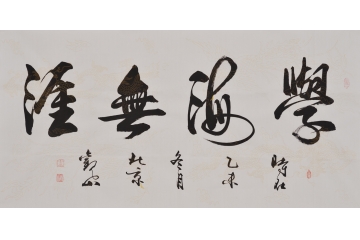 學海無涯
時在
乙未
冬月
北京